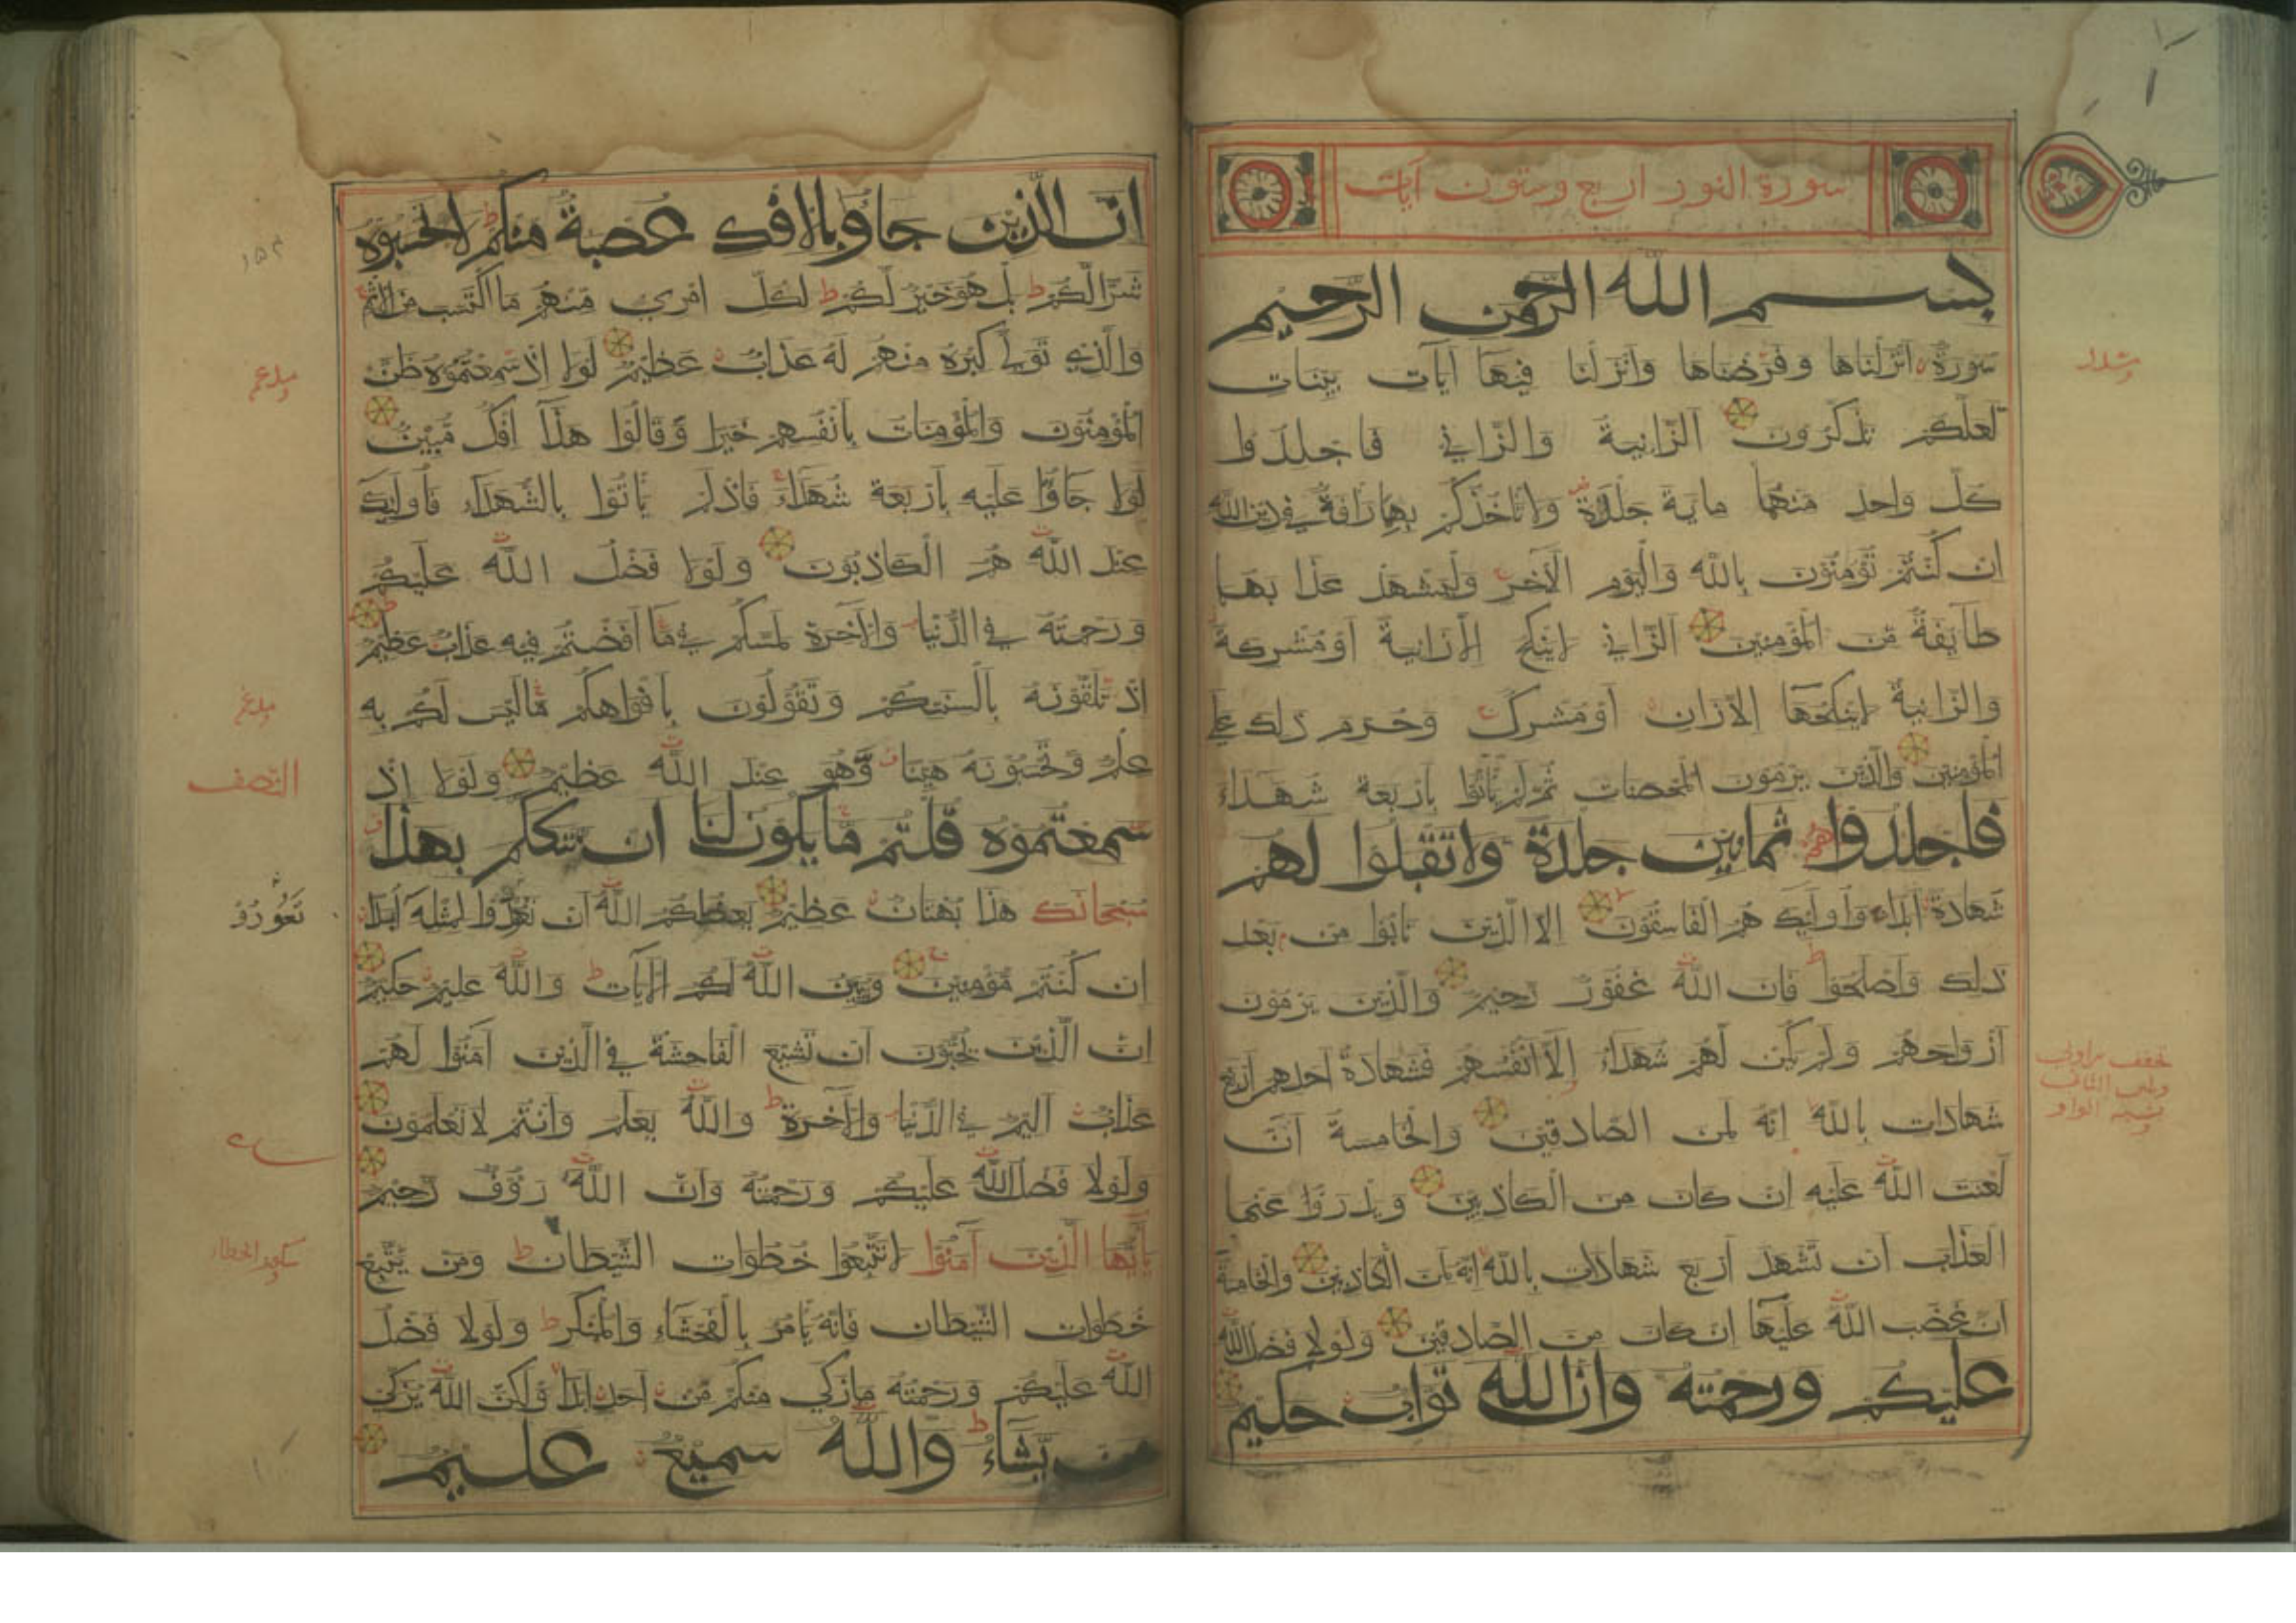 سورة النور اربع وستون آيات
بسم الله الرحمن الرحيم
سورة انزلناها وفرضناها وانزلنا فيها آيات بينات
لعلكم تذكرون الزانية والزاني فاجلدوا
كل واحد منهما ماية جلدة ولا تاخذكم بهما رافة في دين الله
ان كنتم تؤمنون بالله واليوم الآخر وليشهد عذابهما
طايفة من المؤمنين الزاني لا ينكح الا زانية او مشركة
والزانية لا ينكحها الا زان او مشرك وحرم ذلك على
المؤمنين والذين يرمون المحصنات ثم لم ياتوا باربعة شهداء
فاجلدوا هم ثمانين جلدة ولا تقبلوا لهم
شهادة ابدا واولئك هم الفاسقون الا الذين تابوا من بعد
ذلك واصلحوا فان الله غفور رحيم والذين يرمون
ازواجهم ولم يكن لهم شهداء الا انفسهم فشهادة احدهم اربع
شهادات بالله انه لمن الصادقين والخامسة ان
لعنت الله عليه ان كان من الكاذبين ويدرؤا عنها
العذاب ان تشهد اربع شهادات بالله انه لمن الكاذبين والخامسة
ان غضب الله عليها ان كان من الصادقين ولولا فضل الله
عليكم ورحمته وان الله تواب حكيم
مشدد
ان الذين جاؤ بالافك عصبة منكم لا تحسبوه
شرا لكم بل هو خير لكم لكل امرئ منهم ما اكتسب من الاثم
والذي تولى كبره منهم له عذاب عظيم لولا اذ سمعتموه ظن
المؤمنون والمؤمنات بانفسهم خيرا وقالوا هذا افك مبين
لولا جاؤا عليه باربعة شهداء فاذ لم ياتوا بالشهداء فاولئك
عند الله هم الكاذبون ولولا فضل الله عليكم
ورحمته في الدنيا والآخرة لمسكم في ما افضتم فيه عذاب عظيم
اذ تلقونه بالسنتكم وتقولون بافواهكم ما ليس لكم به
علم وتحسبونه هينا وهو عند الله عظيم ولولا اذ
سمعتموه قلتم ما يكون لنا ان نتكلم بهذا
سبحانك هذا بهتان عظيم يعظكم الله ان تعودوا لمثله ابدا
ان كنتم مؤمنين ويبين الله لكم الآيات والله عليم حكيم
ان الذين يحبون ان تشيع الفاحشة في الذين آمنوا لهم
عذاب اليم في الدنيا والآخرة والله يعلم وانتم لا تعلمون
ولولا فضل الله عليكم ورحمته وان الله رؤف رحيم
يايها الذين آمنوا لا تتبعوا خطوات الشيطان ومن يتبع
خطوات الشيطان فانه يامر بالفحشاء والمنكر ولولا فضل
الله عليكم ورحمته ما زكى منكم من احد ابدا ولكن الله يزكي
من يشاء والله سميع عليم
۱۵۴
مدغم
مدغم
النصف